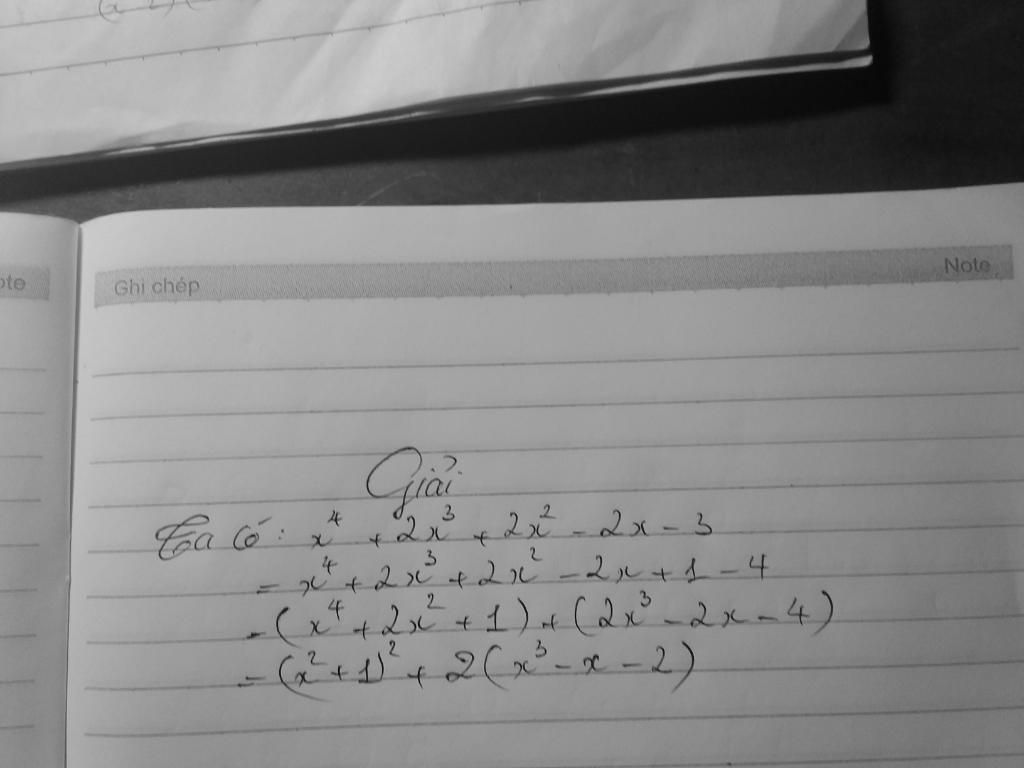 Ghi chép Note
Giải
Ta có: x⁴ + 2x³ + 2x² - 2x - 3
= x⁴ + 2x³ + 2x² - 2x + 1 - 4
= (x⁴ + 2x² + 1) + (2x³ - 2x - 4)
= (x² + 1)² + 2(x³ - x - 2)